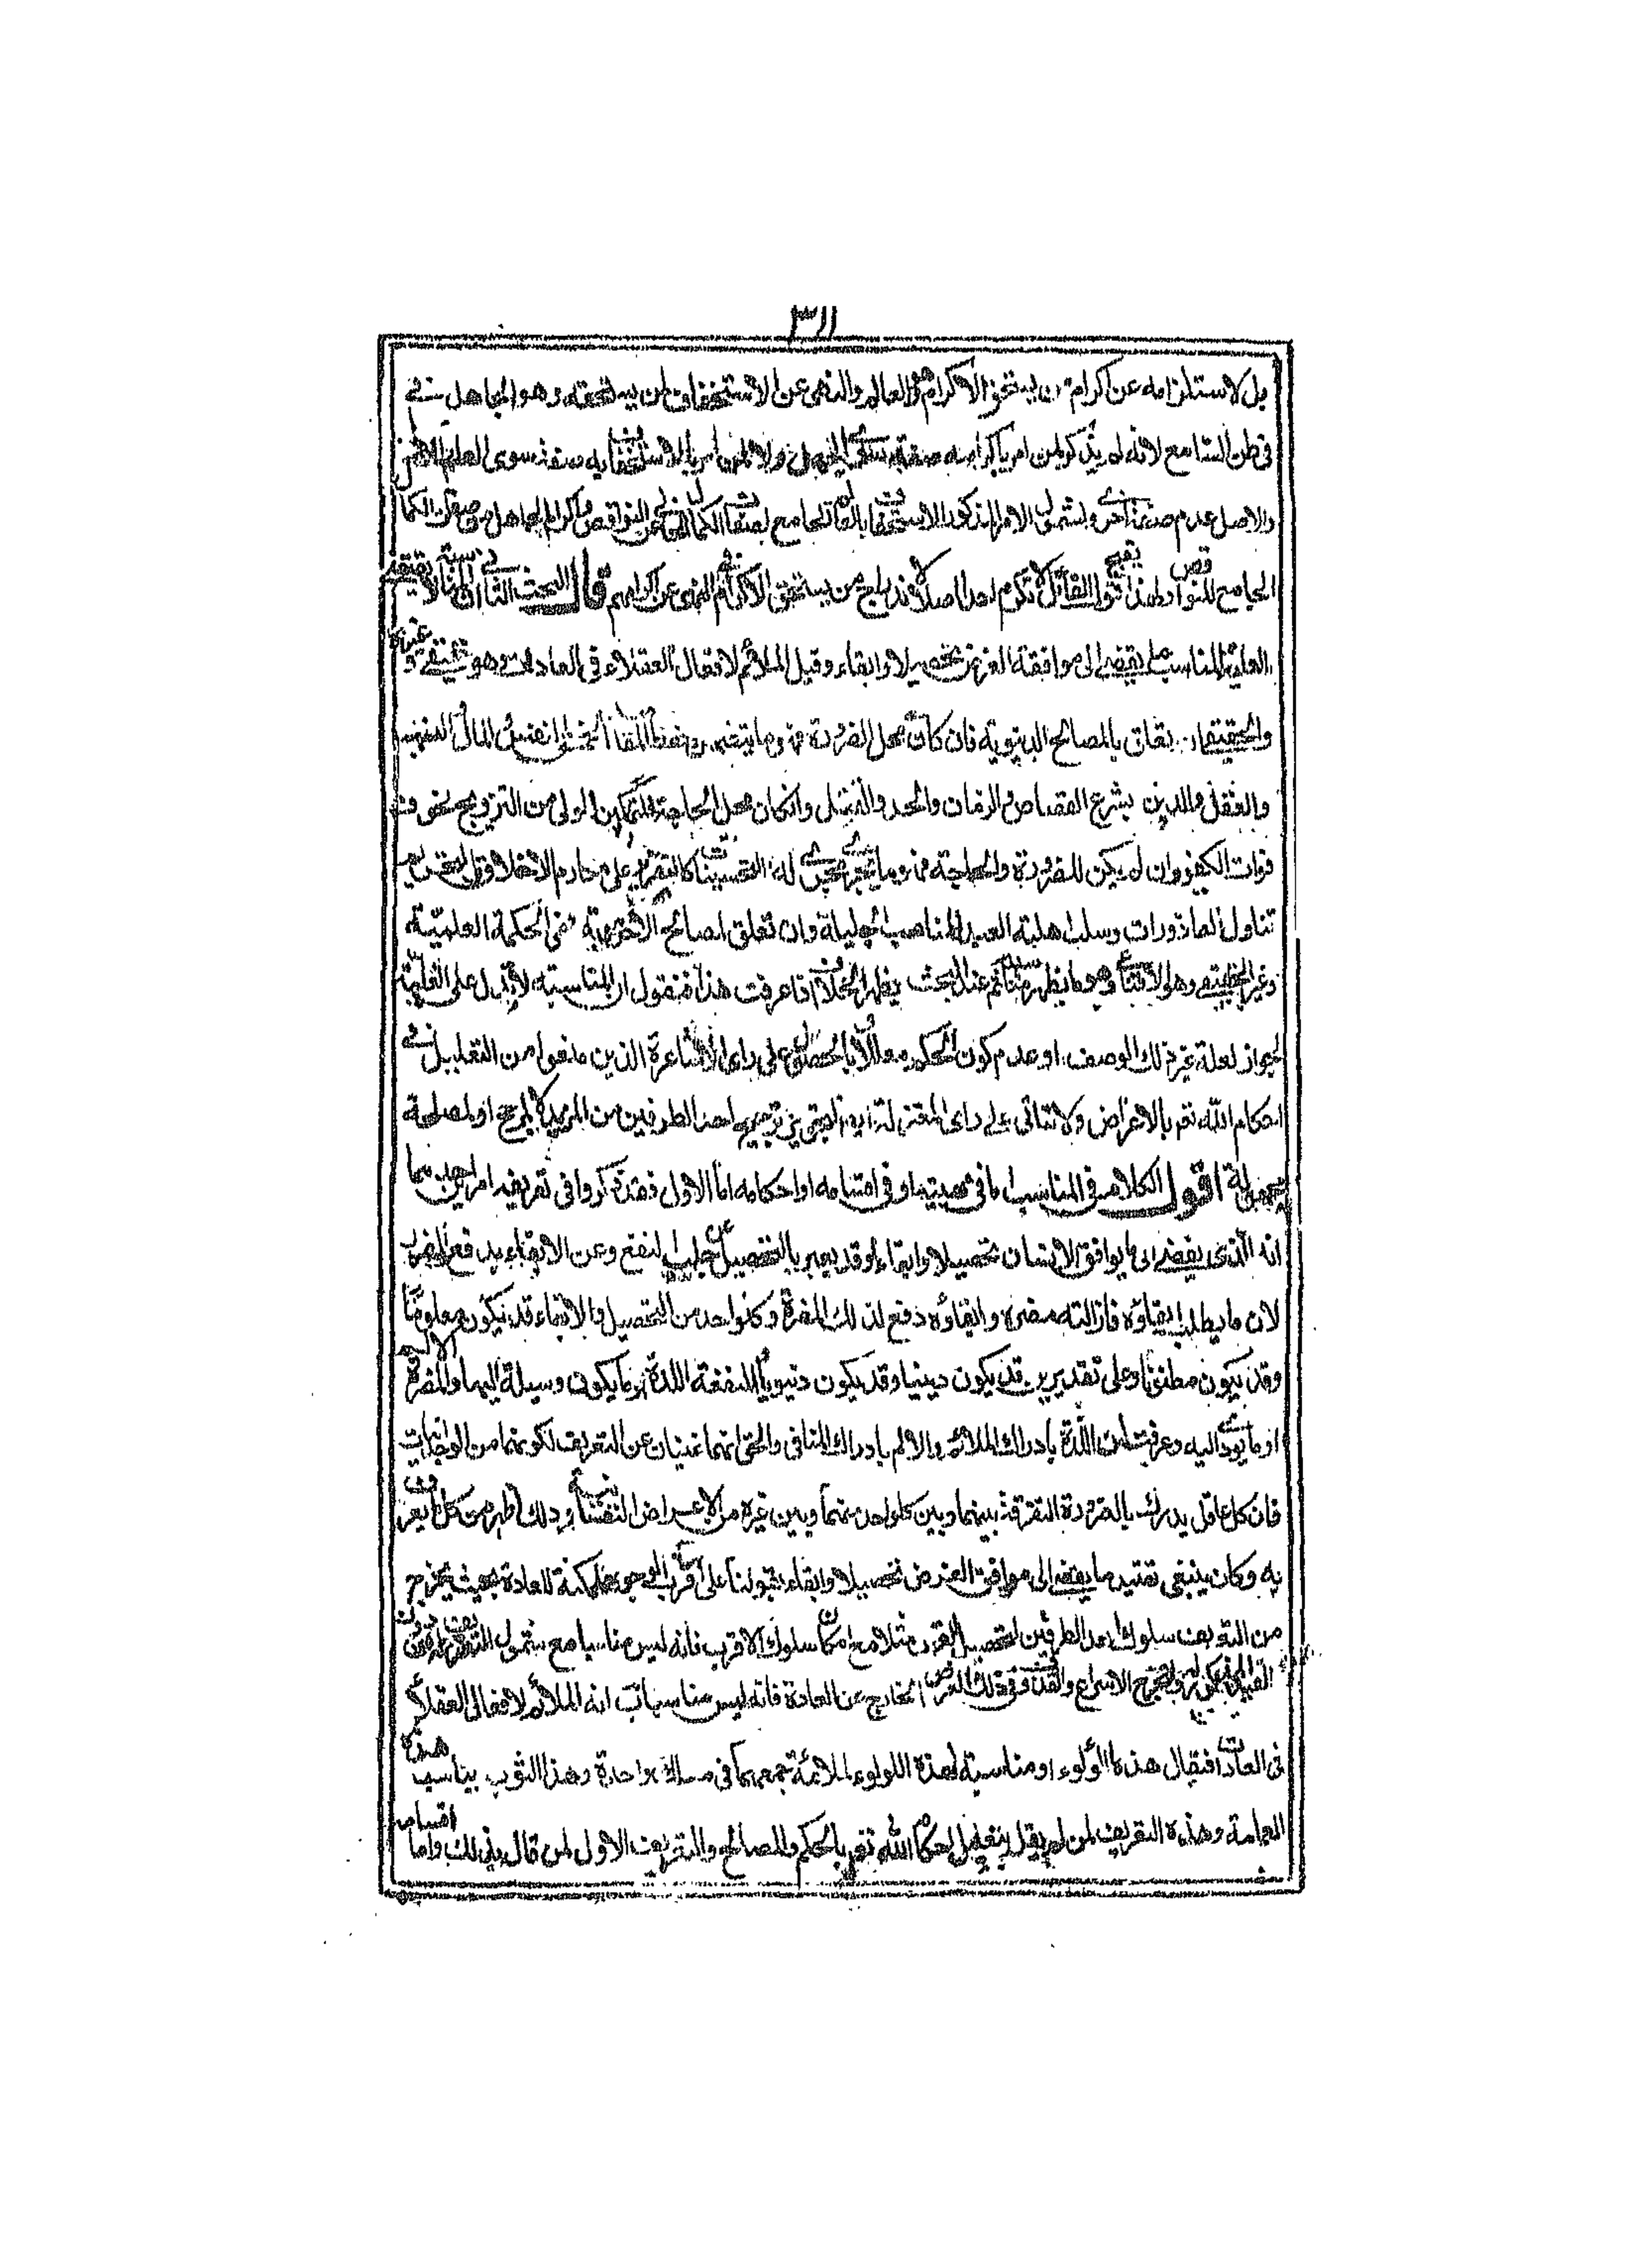 ٣١١
بل لاستلزامه عن اكرام من يستحق الاكرام وهو العالم والنهى عن الاستخفاف لمن يستحقه وهو الجاهل
فى ظن السامع لانه لم يذكر لمن امر باكرامه صفة سوى الجهل ولا لمن امر بالاستخفاف به صفة سوى العلم
والاصل عدم صفة اخرى ولشمول الامر المذكور الاستخفاف بالعالم الجامع لصفات الكمال الخالى عن النواقص واكرام الجاهل صفات الكمال
الجامع للنواقص ولهذا يقبح قول القائل لا تكرم احدا اصلا لاندراج من يستحق الاكرام فى النهى عن اكرامهم قال البحث الثانى المناسبة
العلية المناسب ما يفضى الى موافقة الغرض تحصيلا وابقاء وقيل الملائم لافعال العقلاء فى العادات وهو حقيقى وغيره
والحقيقى ان تعلق بالمصالح الدنيوية فان كان محل الضرورة فهو ما يتضمن حفظ المقاصد الخمسة النفس والمال والنسب
والعقل والدين بشرع القصاص والضمان والحد والقتل وان كان محل الحاجة فكتمكين الولى من التزويج لخوف
فوات الكفو وان لم يكن للضرورة والحاجة فهو ما يجرى مجرى التحسينات كالتقرير على مكارم الاخلاق وتحريم
تناول القاذورات وسلب اهلية العبد المناصب الجليلة وان تعلق لمصالح الاخروية فهى الحكمة العلمية
وغير الحقيقى وهو الاقناعى وهو ما يظهر مناسبته ثم عند البحث يظهر الخلاف اذا عرفت هذا فنقول ان المناسبة لا تدل على العلية
لجواز لعلة غير ذلك الوصف او عدم كون الحكم معللا بالمصالح على راى الاشاعرة الذين منعوا من التعليل فى
احكام الله تعم بالاغراض ولا تتاتى على راى المعتزلة ايضا لتجويز ترجيح احد الطرفين من المريد لا لمرجح او لمصلحة
مجهولة اقول الكلام فى المناسب اما فى مهيته او فى اقسامه او احكامه اما الاول فقد ذكروا فى تعريفه امرين احدهما
انه الذى يفضى الى ما يوافق الانسان تحصيلا وابقاء وقد يعبر بالتحصيل عن جلب النفع وعن الابقاء بدفع الضرر
لان ما يطلب ابقاؤه فازالته مضرة وابقاؤه دفع لتلك المضرة وكل واحد من التحصيل والابقاء قد يكون معلوما
وقد يكون مظنونا وعلى تقديرين قد يكون دينيا وقد يكون دنيويا والمنفعة اللذة او ما يكون وسيلة اليها والمضرة الالم
او ما يودى اليه وعرفت ان اللذة بادراك الملائم والالم بادراك المنافى والحق انهما غنيان عن التعريف لكونهما من الوجدانيات
فان كل عاقل يدرك بالضرورة التفرقة بينهما وبين كل واحد منهما وبين غيره من الاعراض النفسانية وذلك اظهر من كل ما يعرف
به وكان ينبغى تقييد ما يفضى الى موافق الغرض تحصيلا وابقاء بقولنا على اقرب الوجوه الممكنة للعادة بحيث يخرج
من التعريف سلوك ابعد الطريقين لتحصيل الغرض مثلا مع امكان سلوك الاقرب فانه ليس مناسبا مع شمول التعريف له بدون
القيد المذكور الخارج عن العادة فانه ليس مناسبا ب انه الملائم لافعال العقلاء
فى العادات فيقال هذه اللؤلؤة مناسبة لهذه اللؤلؤة الملائمة جمعهما فى سلك واحدة وهذا الثوب يناسب هذه
العمامة وهذه التعريف لمن لم يقل بتعليل احكام الله تعم بالحكم والمصالح والتعريف الاول لمن قال بذلك واما اقسامه